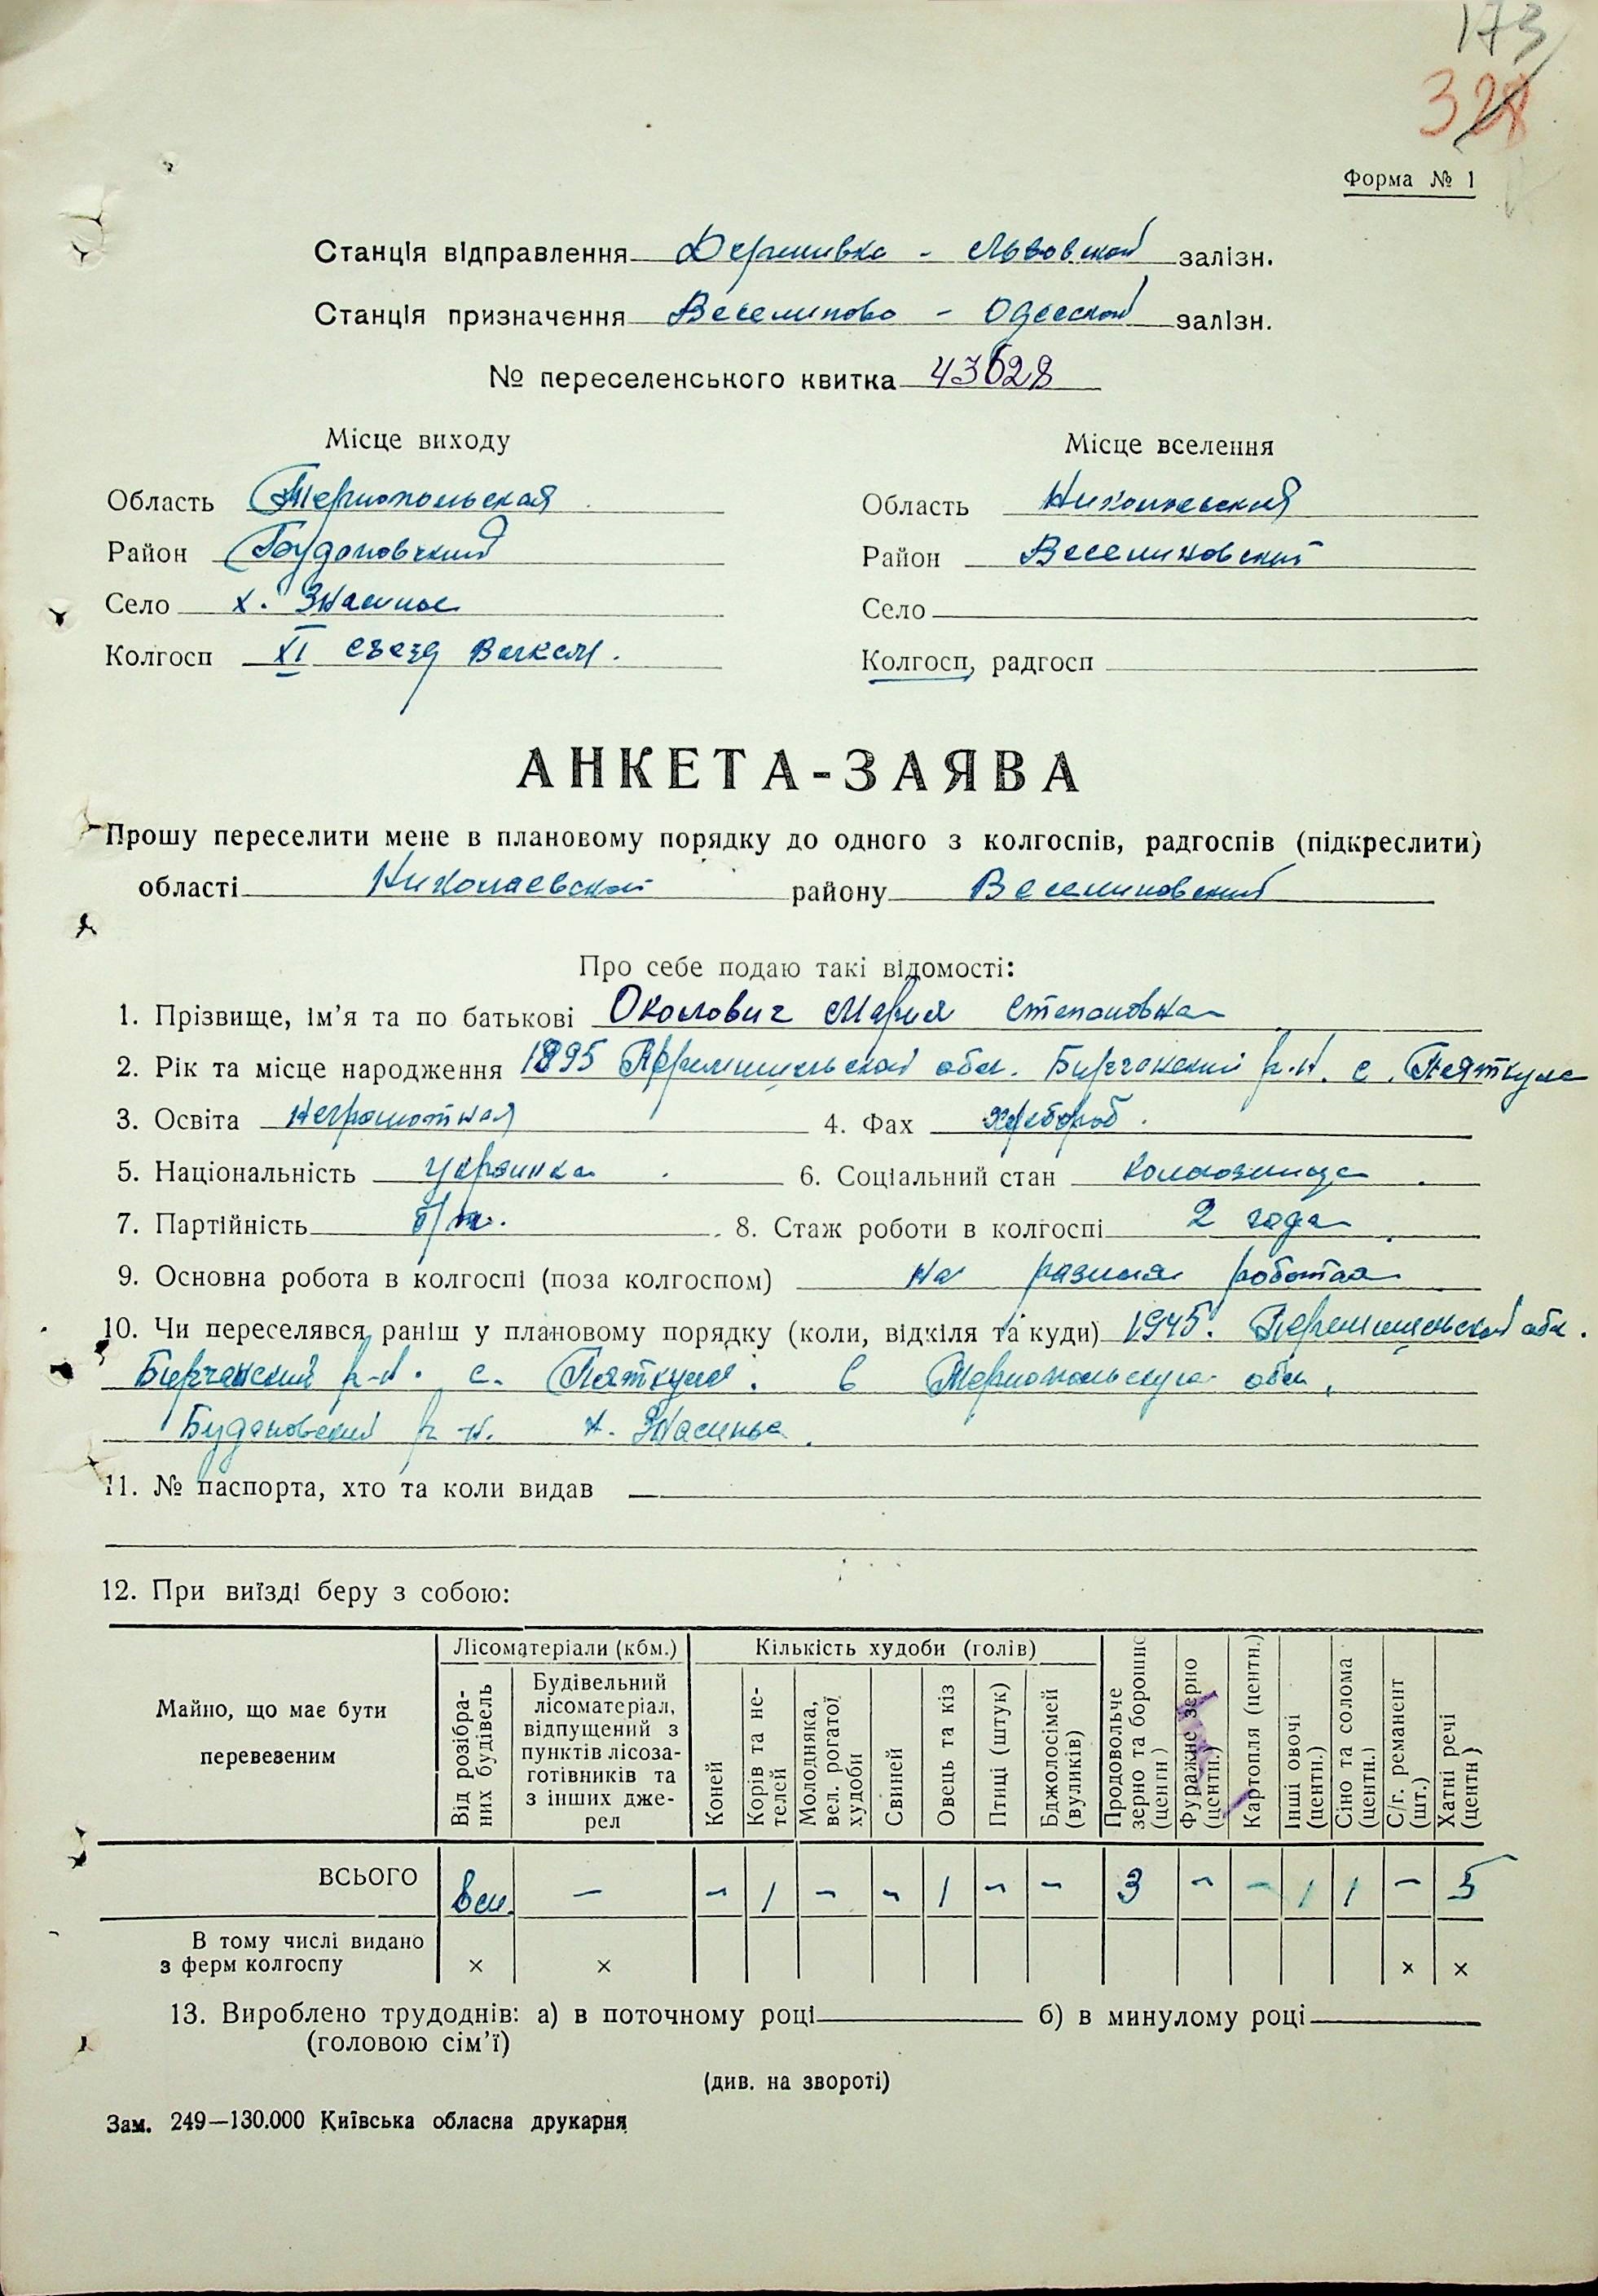 173
328
Форма № 1
Станція відправлення Деренивка - Львовской залізн.
Станція призначення Веселиново - Одесской залізн.
№ переселенського квитка 43628
Місце виходу Місце вселення
Область Тернопольская Область Николаевская
Район Будановский Район Веселиновский
Село х. Село
Колгосп XI съезд Колгосп, радгосп
АНКЕТА-ЗАЯВА
Прошу переселити мене в плановому порядку до одного з колгоспів, радгоспів (підкреслити)
області Николаевской району Веселиновский
Про себе подаю такі відомості:
1. Прізвище, ім'я та по батькові Околович Мария Степановна
2. Рік та місце народження 1895 Перемишльской обл. Бирчанский р-н. с. Пяткуле
3. Освіта неграмотная 4. Фах хлебороб.
5. Національність украинка 6. Соціальний стан колхозница
7. Партійність б/п. 8. Стаж роботи в колгоспі 2 года
9. Основна робота в колгоспі (поза колгоспом) на разных работах
10. Чи переселявся раніш у плановому порядку (коли, відкіля та куди) 1945. Перемишльской обл.
Бирчанский р-н. с. в Тернопольскую обл.
Будановский р-н. х.
11. № паспорта, хто та коли видав
12. При виїзді беру з собою:
Майно, що має бути перевезеним
Лісоматеріали (кбм.)
Від розібраних будівель
Будівельний лісоматеріал, відпущений з пунктів лісозаготівників та з інших джерел
Кількість худоби (голів)
Коней
Корів та нетелей
Молодняка, вел. рогатої худоби
Свиней
Овець та кіз
Птиці (штук)
Бджолосімей (вуликів)
Продовольче зерно та борошно (центн)
Фуражне зерно (центн.)
Картопля (центн.)
Інші овочі (центн.)
Сіно та солома (центн.)
С/г. реманент (шт.)
Хатні речі (центн)
ВСЬОГО — - 1 - - 1 - - 3 - - 1 1 - 5
В тому числі видано
з ферм колгоспу × × × ×
13. Вироблено трудоднів: а) в поточному році б) в минулому році
(головою сім'ї)
(див. на звороті)
Зам. 249—130.000 Київська обласна друкарня